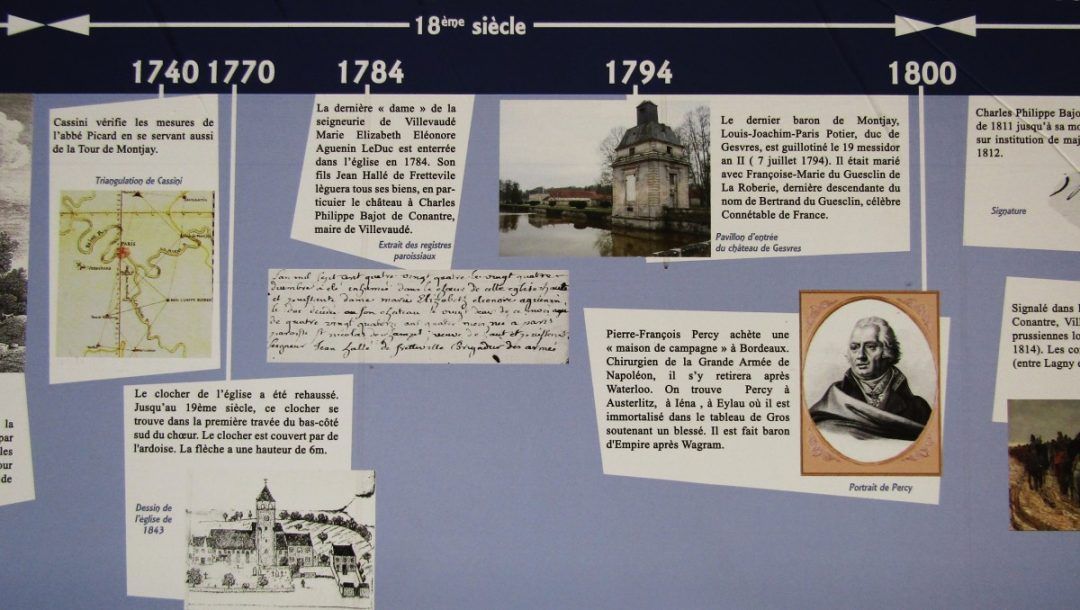 18ème siècle
1740 1770 1784 1794 1800
Cassini vérifie les mesures de
l'abbé Picard en se servant aussi
de la Tour de Montjay.
Triangulation de Cassini
PARIS
La dernière « dame » de la
seigneurie de Villevaudé
Marie Elizabeth Eléonore
Aguenin LeDuc est enterrée
dans l'église en 1784. Son
fils Jean Hallé de Frettevile
lèguera tous ses biens, en par-
ticuier le château à Charles
Philippe Bajot de Conantre,
maire de Villevaudé.
Extrait des registres
paroissiaux
Le dernier baron de Montjay,
Louis-Joachim-Paris Potier, duc de
Gesvres, est guillotiné le 19 messidor
an II ( 7 juillet 1794). Il était marié
avec Françoise-Marie du Guesclin de
La Roberie, dernière descendante du
nom de Bertrand du Guesclin, célèbre
Connétable de France.
Pavillon d'entrée
du château de Gesvres
Charles Philippe Bajot
de 1811 jusqu'à sa mo
sur institution de maj
1812.
Signature
Le clocher de l'église a été rehaussé.
Jusqu'au 19ème siècle, ce clocher se
trouve dans la première travée du bas-côté
sud du chœur. Le clocher est couvert par de
l'ardoise. La flèche a une hauteur de 6m.
Dessin de
l'église de
1843
Pierre-François Percy achète une
« maison de campagne » à Bordeaux.
Chirurgien de la Grande Armée de
Napoléon, il s'y retirera après
Waterloo. On trouve Percy à
Austerlitz, à Iéna , à Eylau où il est
immortalisé dans le tableau de Gros
soutenant un blessé. Il est fait baron
d'Empire après Wagram.
Portrait de Percy
Signalé dans l
Conantre, Vill
prussiennes lo
1814). Les co
(entre Lagny e
la
par
les
our
de